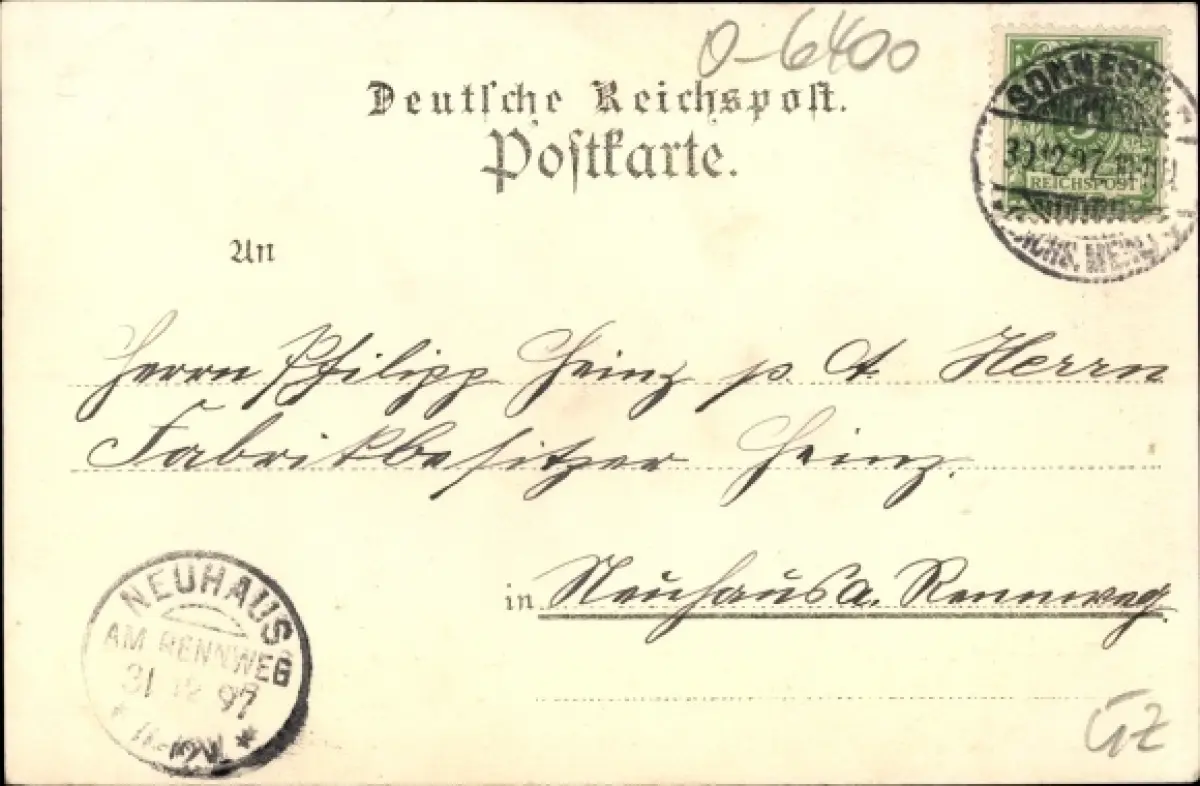 O-6400
Deutsche Reichspost.
Postkarte.
REICHSPOST
An
Herrn Philipp Heinz p. A. Herrn
Fabrikbesitzer Heinz.
in Neuhaus a. Rennweg.
NEUHAUS
AM RENNWEG
31 12 97